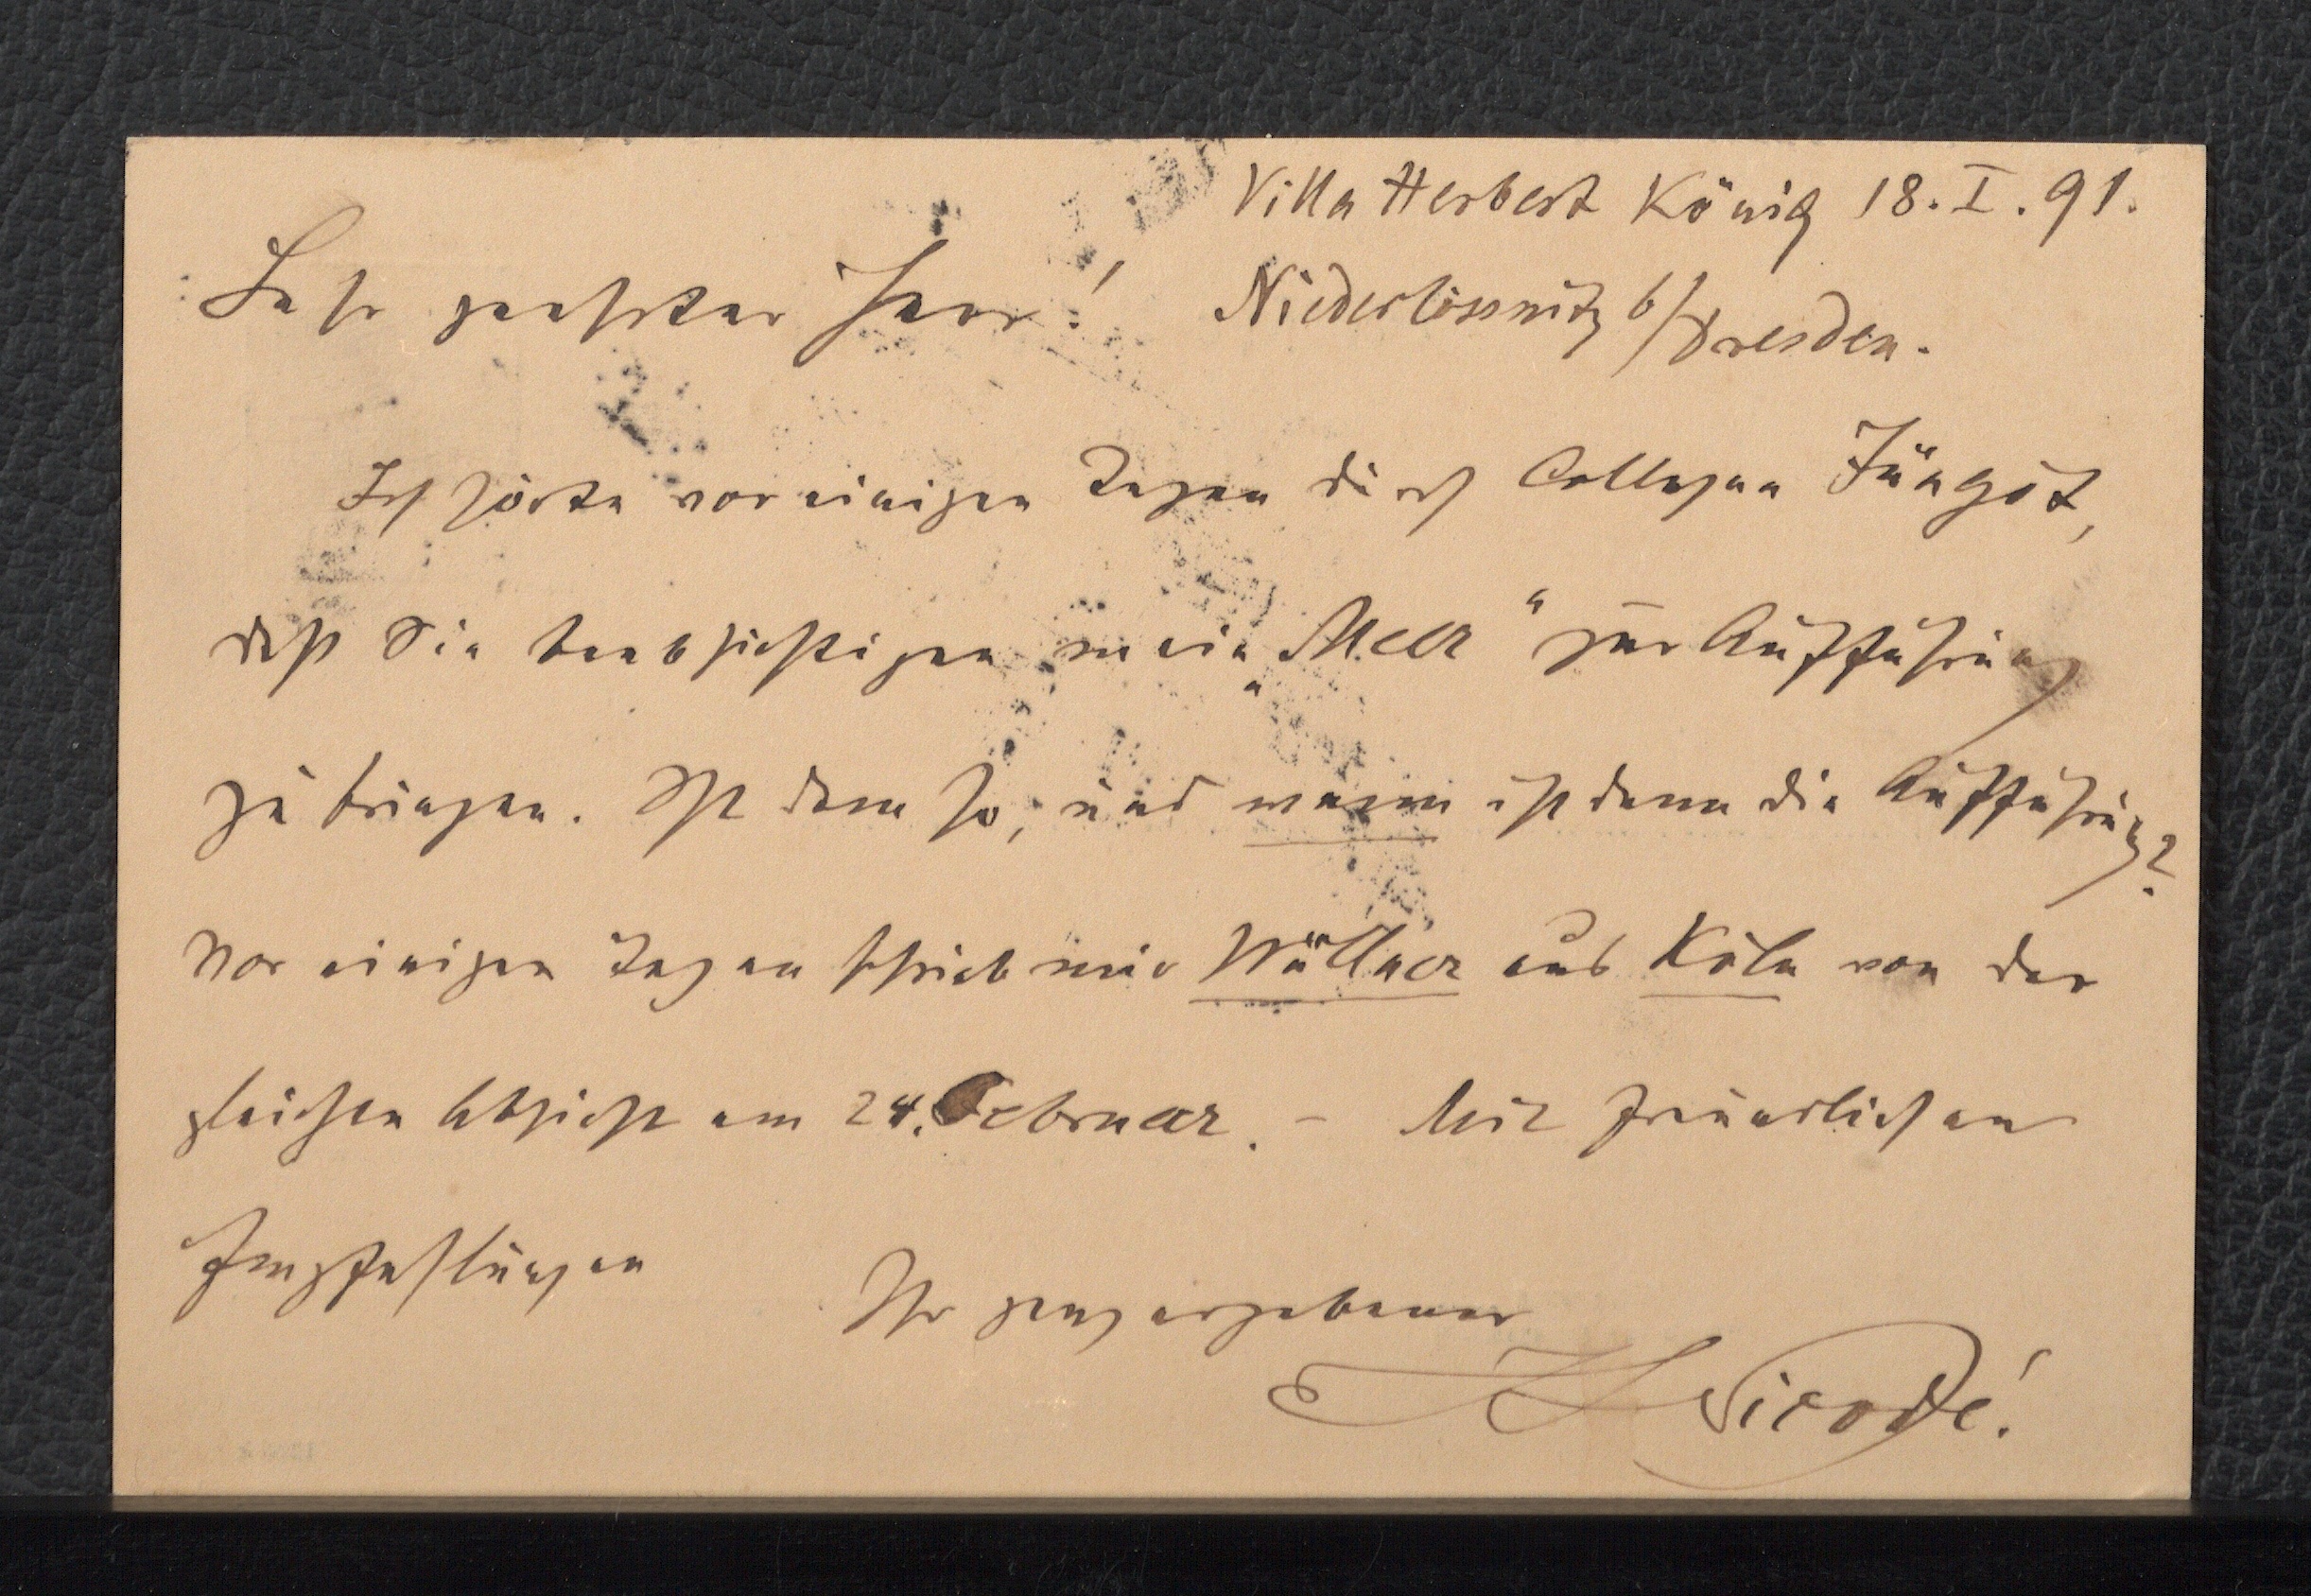 Villa Herbert König 18.I.91.
Niederlössnitz b/Dresden.
Sehr geehrter Herr!
Ich hörte vor einigen Tagen durch Collegen Jüngst,
daß Sie beabsichtigen mein „Meer“ zur Aufführung
zu bringen. Ist dem so, und wann ist denn die Aufführung?
Vor einigen Tagen schrieb mir Wüllner aus Köln von der
gleichen Absicht am 24. Februar. – Mit freundlichen
Empfehlungen
Ihr ganz ergebener
JLNicodé!